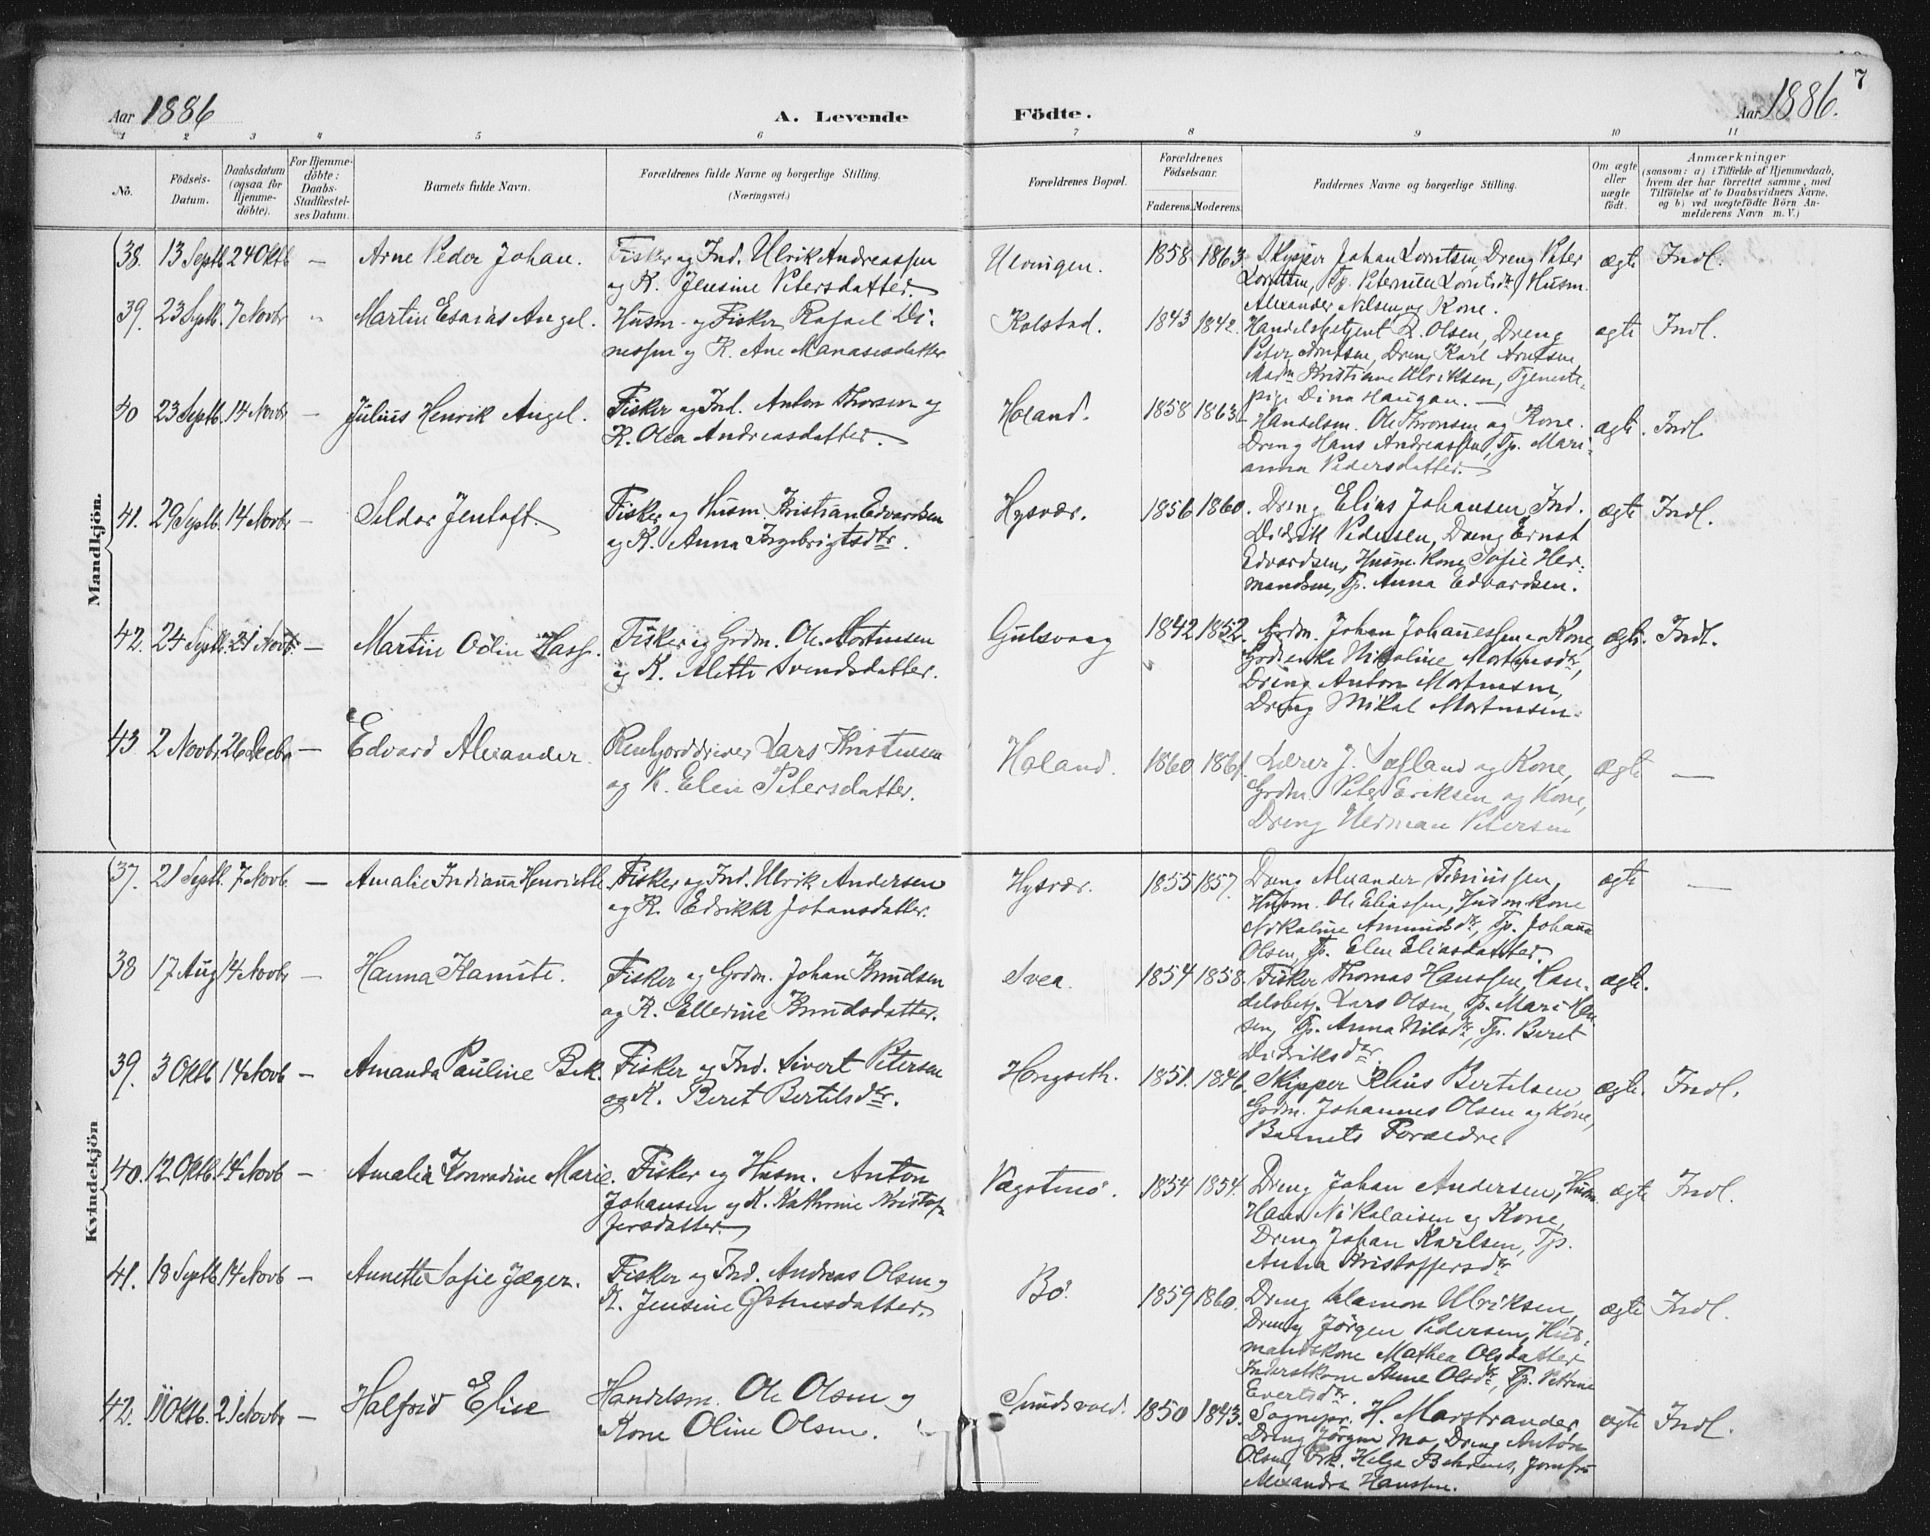 Aar 1886
A. Levende
Födte.
Aar 1886.
7
1 2 3 4 5 6 7 8 9 10 11
No.
Födsels-
Datum.
Daabsdatum
(ogsaa for
Hjemme-
döbte).
For Hjemme-
döbte:
Daabs-
Stadfæstel-
ses Datum.
Barnets fulde Navn.
Forældrenes fulde Navne og borgerlige Stilling.
(Næringsvei.)
Forældrenes Bopæl.
Forældrenes
Födselsaar.
Faderens. Moderens.
Faddernes Navne og borgerlige Stilling.
Om ægte
eller
uægte
födt.
Anmærkninger
(saasom: a) i Tilfælde af Hjemmedaab,
hvem der har forrettet samme, med
Tilföielse af to Daabsvidners Navne,
og b) ved uægtefödte Börn An-
melderens Navn m. V.)
Mandkjön.
38. 13 Septb. 24 Oktb — Arne Peder Johan. Fisker og Ind. Ulrik Andreassen
og K. Jensine Petersdatter.
Ulvingen. 1858 1863. Skipper Johan Lorntsen, Dreng Peter
Lorntsen, Tp. Peternille Lorntsdr, Husm.
Alexander Nilsen og Kone.
ægte Indl.
39. 23 Septb. 7 Novbr " Martin Esaias Angel. Husm. og Fisker Rafael Di-
nessen og K. Ane Manasesdatter
Kolstad. 1843 1842. Handelsbetjent R. Olsen, Dreng
Peter Arntsen, Dreng Karl Arntsen,
Madm Kristiane Ulriksen, Tjeneste-
pige Dina Haugan. —
ægte Indl.
40 23 Septb. 14 Novbr — Julius Henrik Angel. Fisker og Ind. Anton Thorsen og
K. Olea Andreasdatter.
Holand. 1858 1863. Handelsm. Ole Thronsen og Kone.
Dreng Hans Andreassen, Tp. Mari-
anna Pedersdatter.
ægte. Indl.
41. 29 Septb. 14 Novbr — Seldor Jentoft. Fisker og Husm. Kristian Edvardsen
og K. Anna Ingebrigtsdtr.
Hysvær. 1856 1860. Dreng Elias Johansen, Ind.
Didrik Pedersen, Dreng Ernst
Edvardsen, Husm. Kone Sofie Her-
mandsen, Tp. Anna Edvardsen.
ægte Indl.
42. 24 Septb. 21 Novb. — Martin Odin Hass. Fisker og Grdm. Ole Mortensen
og K. Alette Svendsdatter.
Gulsvaag 1842 1852. Grdm. Johan Johannessen og Kone,
Grdenke Nikoline Mortensdtr,
Dreng Anton Mortensen,
Dreng Mikal Mortensen.
ægte. Indl.
43. 2 Novbr. 26 Decbr — Edvard Alexander. Renhjorddriver Lars Kristensen
og K. Elen Petersdatter.
Holand. 1860 1861. Lærer J. Sæfland og Kone,
Grdm. Peter Eriksen og Kone,
Dreng Herman Petersen
ægte —
Kvindekjön
37. 21 Septb. 7 Novb. — Amalie Indianna Henriette. Fisker og Ind. Ulrik Andersen
og K. Edrikke Johansdatter.
Hysvær. 1855 1857. Dreng Alexander
Husm. Ole Eliassen, Husm. Kone
Nikoline Amundsdr, Tp. Johanna
Olsen, Tp. Elen Eliasdatter.
ægte —
38 17 Aug 14 Novbr — Hanna Kamite. Fisker og Grdm. Johan Knudsen
og K. Ellerine Knudsdatter.
Svea. 1854 1858. Fisker Thomas Hanssen, Han-
delsbetj. Lars Olsen, Tp. Mari
sen, Tp. Anna Nilsdr, Tp. Beret
Didriksdtr.
ægte.
39. 3 Oktb 14 Novb — Amanda Pauline Bek. Fisker og Ind. Sivert Petersen
og K. Beret Bertilsdtr.
Hongseth. 1851. 1846. Skipper Klaus Bertelsen,
Grdm. Johannes Olsen og Kone,
Barnets Forældre.
ægte. Indl.
40. 12 Oktb. 14 Novb — Amalia Konradine Marie. Fisker og Husm. Anton
Johansen og K. Kathrine Kristof-
fersdatter.
Vågotmo. 1854 1854. Dreng Johan Andersen, Husm.
Hans Nikolaisen og Kone,
Dreng Johan Karlsen, Tp.
Anna Kristoffersdtr
ægte Indl.
41. 18 Septb 14 Novb — Annette Sofie Jæger. Fisker og Ind. Andreas Olsen og
K. Jensine Østensdatter.
Bö. 1859 1860. Dreng Salamon Ulriksen,
Dreng Jörgen Pedersen, Hus-
mandskone Mathea Olsdatter
Inderstkone Anne Olsdr, Tp. Petrine
Evertsdtr.
ægte Indl.
42. 11 Oktb. 21 Novbr — Halfrid Elise Handelsm. Ole Olsen og
Kone Oline Olsen.
Sundsvold. 1850 1843. Sognepr. H. Marstrander,
Dreng Jörgen Mo, Dreng Anton
Olsen, Frk. Helga Behrens, Jomfru
Alexandra Hanssen.
ægte Indl.